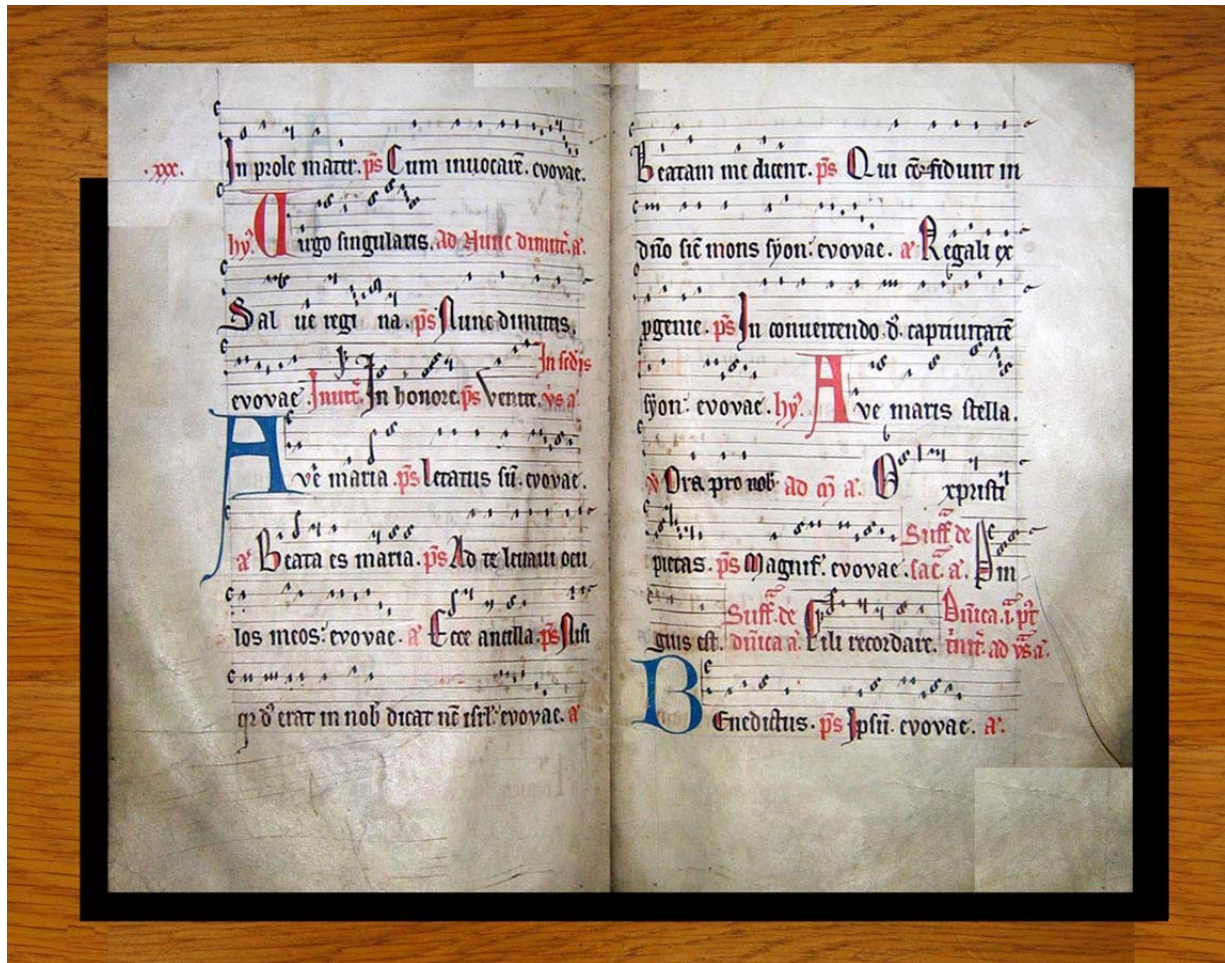 .xxx.
In prole mater. p̄s Cum inuocarē. evovae.
hȳ. Uirgo singularis. ad Nunc dimitt̄. a͛.
Sal ue regi na. p̄s Nunc dimittis.
evovae. Inuit̄. In honore. p̄s Venite. In ſcd̄is
v̄s a͛.
Ave maria. p̄s Letatus sū. evovae.
a͛ Beata es maria. p̄s Ad te leuaui ocu
los meos. evovae. a͛ Ecce ancilla. p̄s Niſi
qr d̄ erat in nob̄ dicat nc̄ iſrl̄. evovae. a͛
Beatam me dicent. p̄s Qui cō fidunt in
dn̄o sic̄ mons syon. evovae. a͛ Regali ex
pgenie. p̄s In conuertendo d̄. captiuitatē
syon. evovae. hȳ. Ave maris stella.
v̄ Ora pro nob̄ ad m̄ a͛. O xpristi
pietas. p̄s Magnif̄. evovae. sac̄. a͛. Suff̄ de Am
gius est. Suff̄. de
dn̄ica a͛. Fili recordare. Dn̄ica. i. p̄t
inuit̄. ad v̄s a͛.
Benedictus. p̄s Ipsū. evovae. a͛.